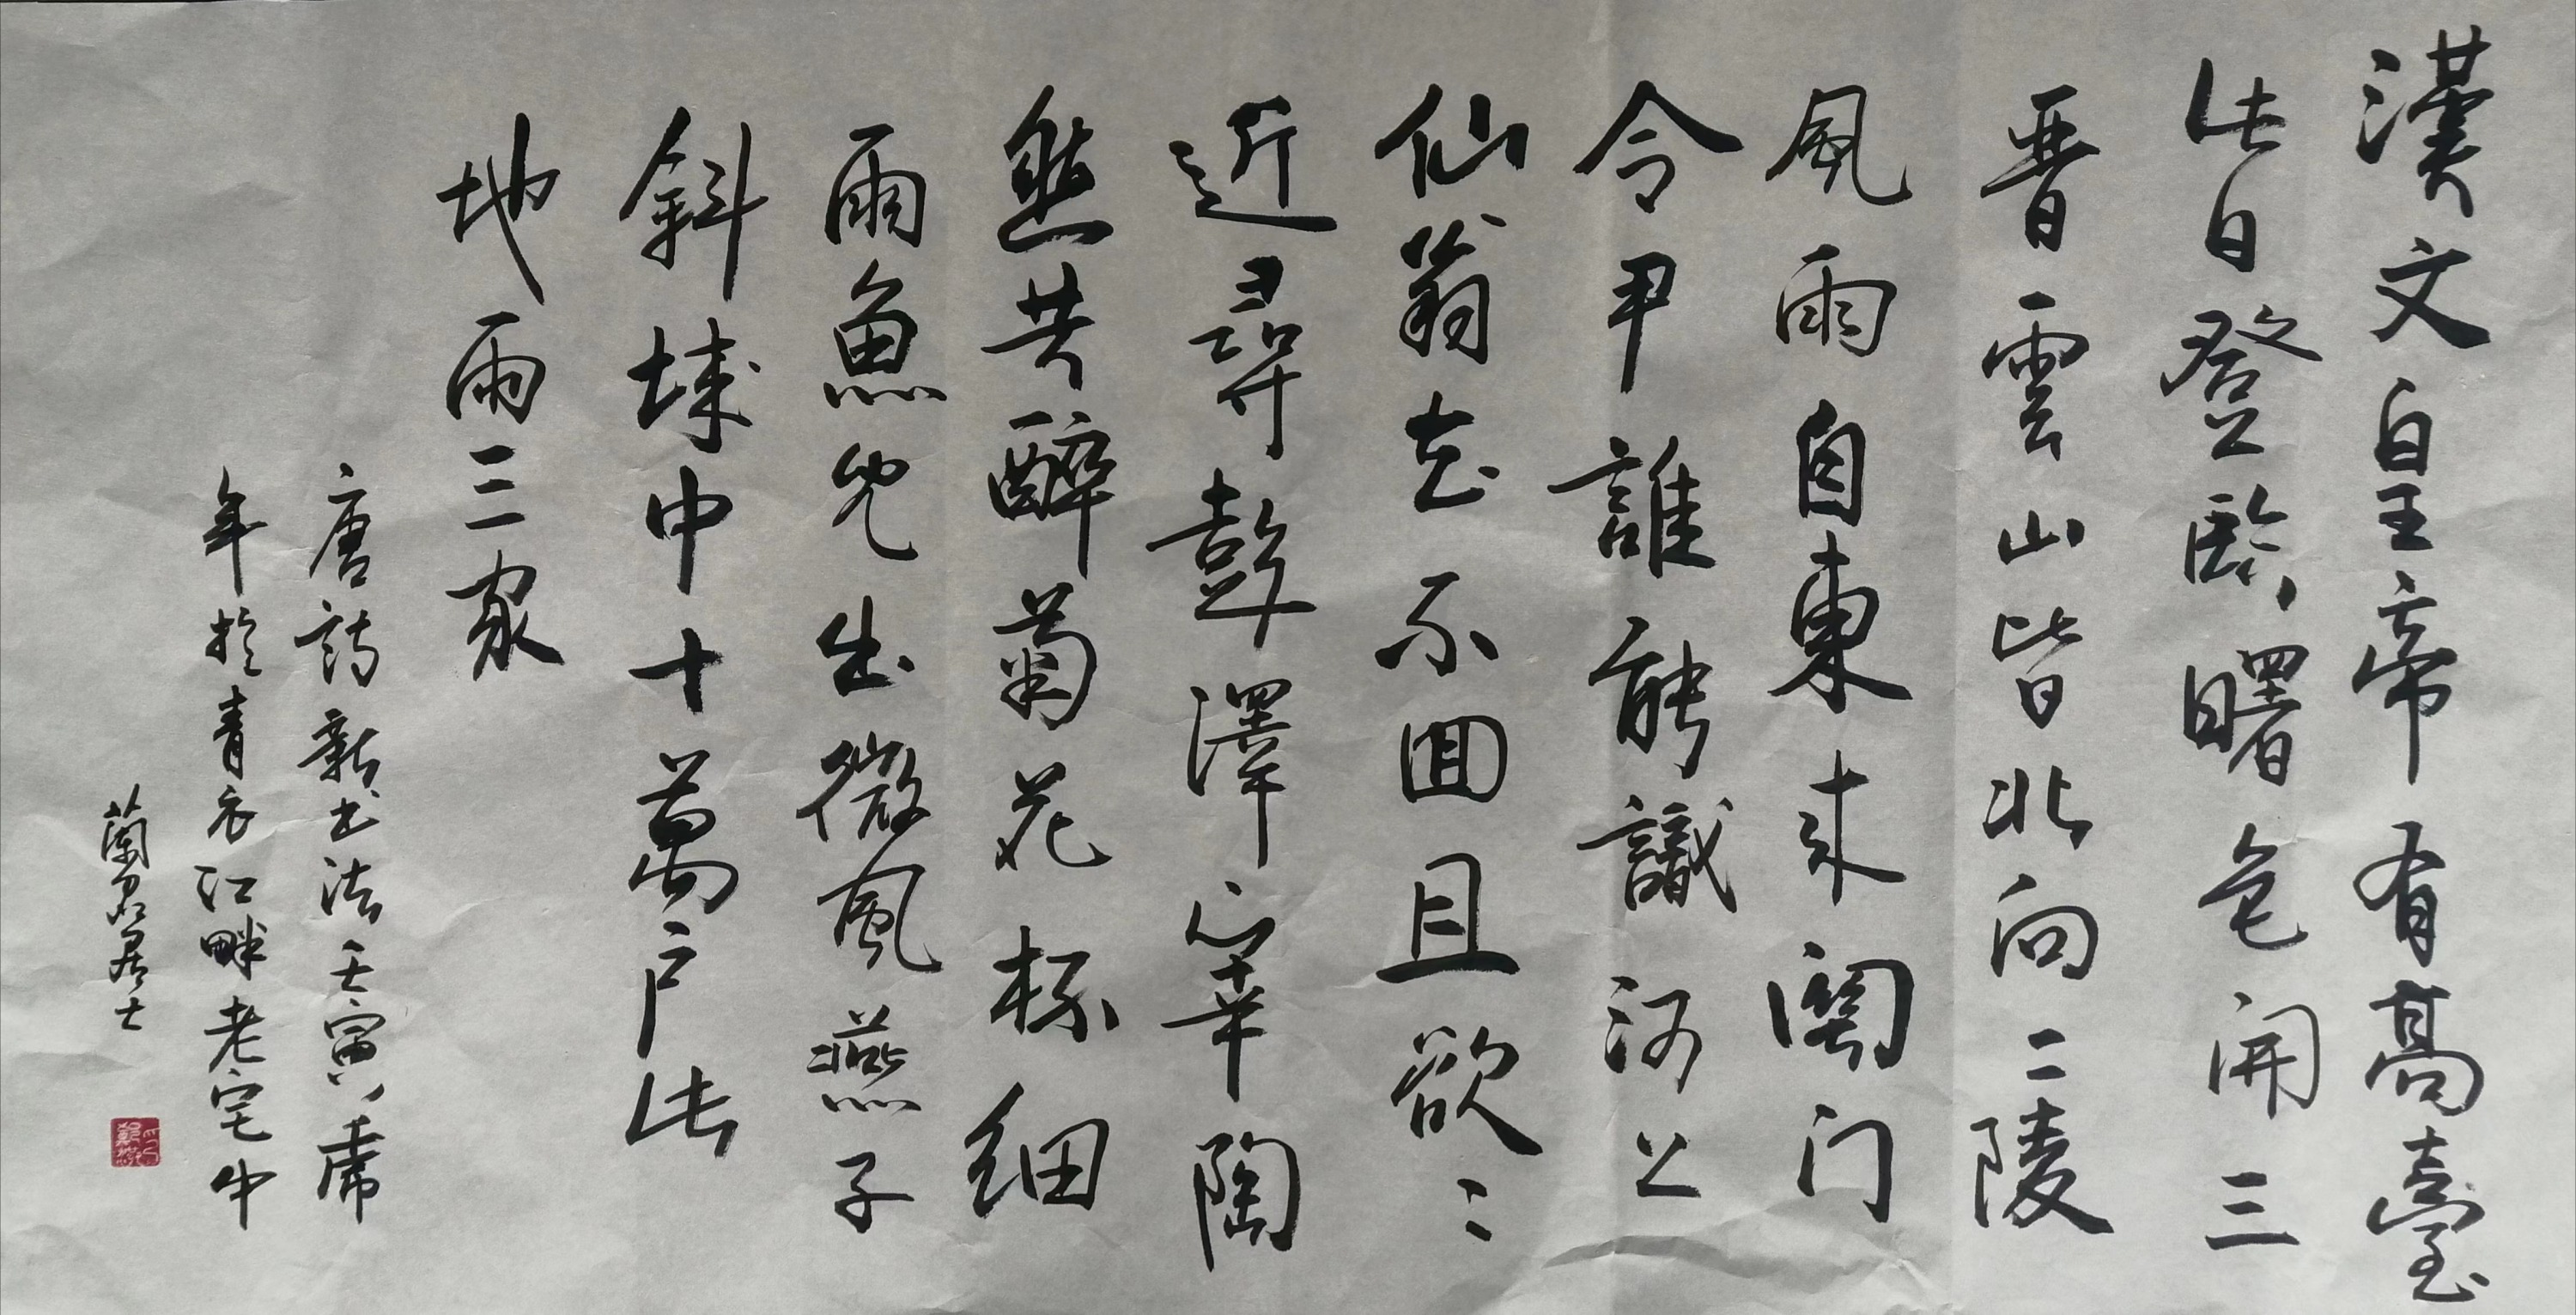 漢文皇帝有高臺
此日登臨曙色開三
晋雲山皆北向二陵
風雨自東来闗门
令尹誰能識河上
仙翁去不回且欲〻
近尋彭澤宰陶
然共醉菊花杯細
雨魚兒出微風燕子
斜城中十萬户此
地兩三家
唐詩新书法壬寅虎
年於青衣江畔老宅中
蘭君居士